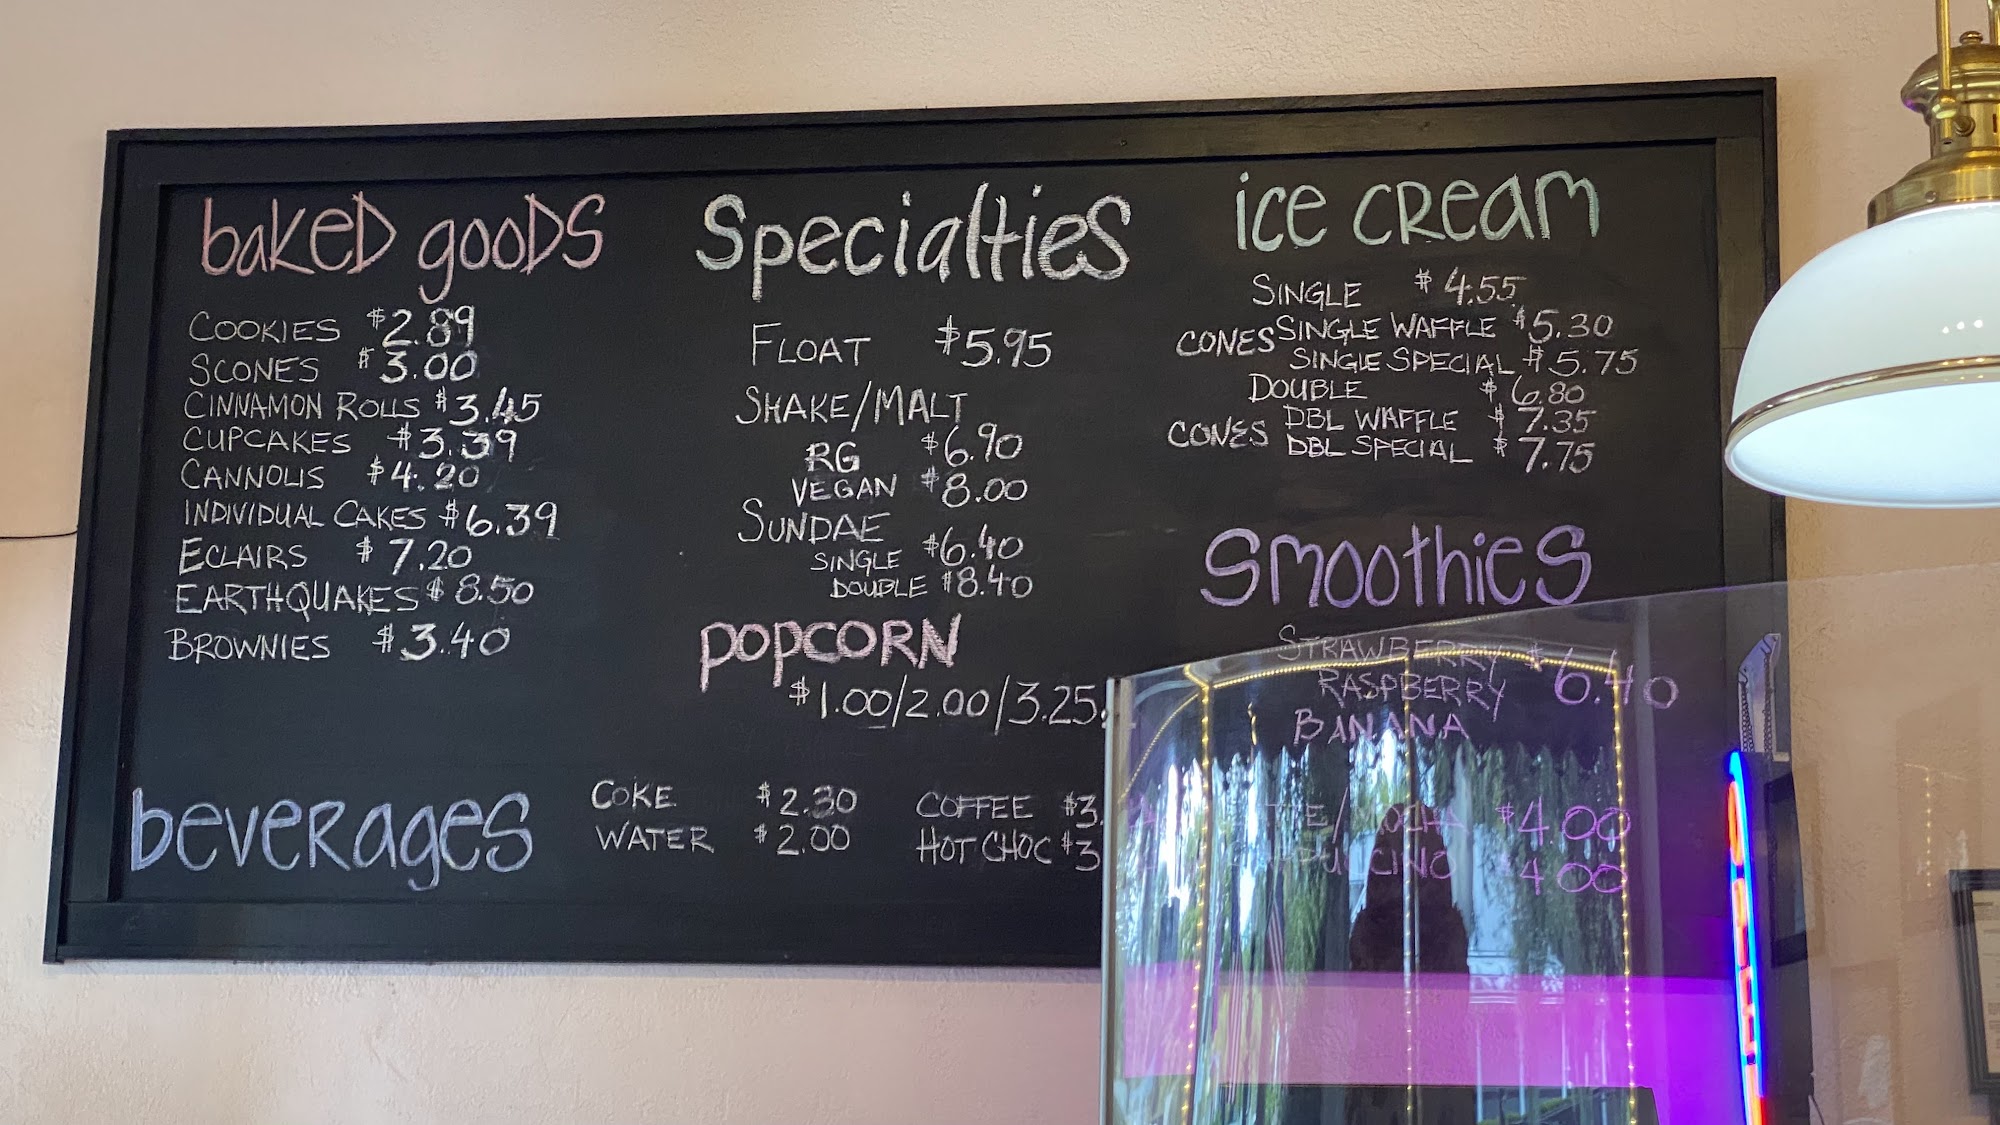 baked goods
COOKIES $2.89
SCONES $3.00
CINNAMON ROLLS $3.45
CUPCAKES $3.39
CANNOLIS $4.20
INDIVIDUAL CAKES $6.39
ECLAIRS $7.20
EARTHQUAKES $8.50
BROWNIES $3.40
Specialties
FLOAT $5.95
SHAKE/MALT
RG $6.90
VEGAN $8.00
SUNDAE
SINGLE $6.40
DOUBLE $8.40
POPCORN
$1.00/2.00/3.25
ice cream
SINGLE $4.55
CONES SINGLE WAFFLE $5.30
SINGLE SPECIAL $5.75
DOUBLE $6.80
CONES DBL WAFFLE $7.35
DBL SPECIAL $7.75
smoothies
STRAWBERRY $6.40
RASPBERRY
BANANA
beverages
COKE $2.30
WATER $2.00
COFFEE $3.
HOT CHOC $3
/MOCHA $4.00
$4.00